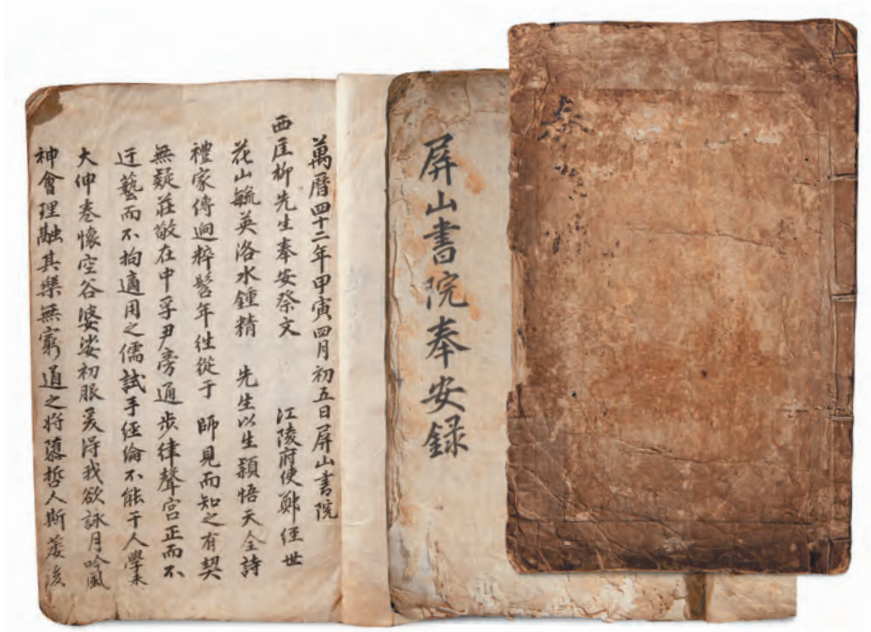 屏山書院奉安録
萬曆四十二年甲寅四月初五日屏山書院
西厓柳先生奉安祭文 江陵府使鄭經世
花山毓英洛水鍾精 先生以生穎悟天全詩
禮家傳逈粹髫年徃從于 師見而知之有契
無疑莊敬在中孚尹旁通步律聲宮正而不
迂藝而不拘適用之儒試手經綸不能干人學未
大伸卷懷空谷婆娑初服爰得我欲詠月吟風
神會理融其樂無窮道之將 哲人斯萎